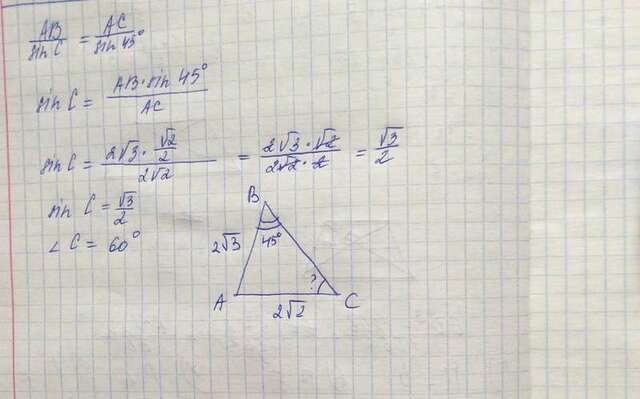 AB/sin C = AC/sin 45°
sin C = AB·sin 45°/AC
sin C = 2√3·√2/2/2√2 = 2√3·√2/2√2·2 = √3/2
sin C = √3/2
∠C = 60°
B
2√3
45°
?
A
C
2√2